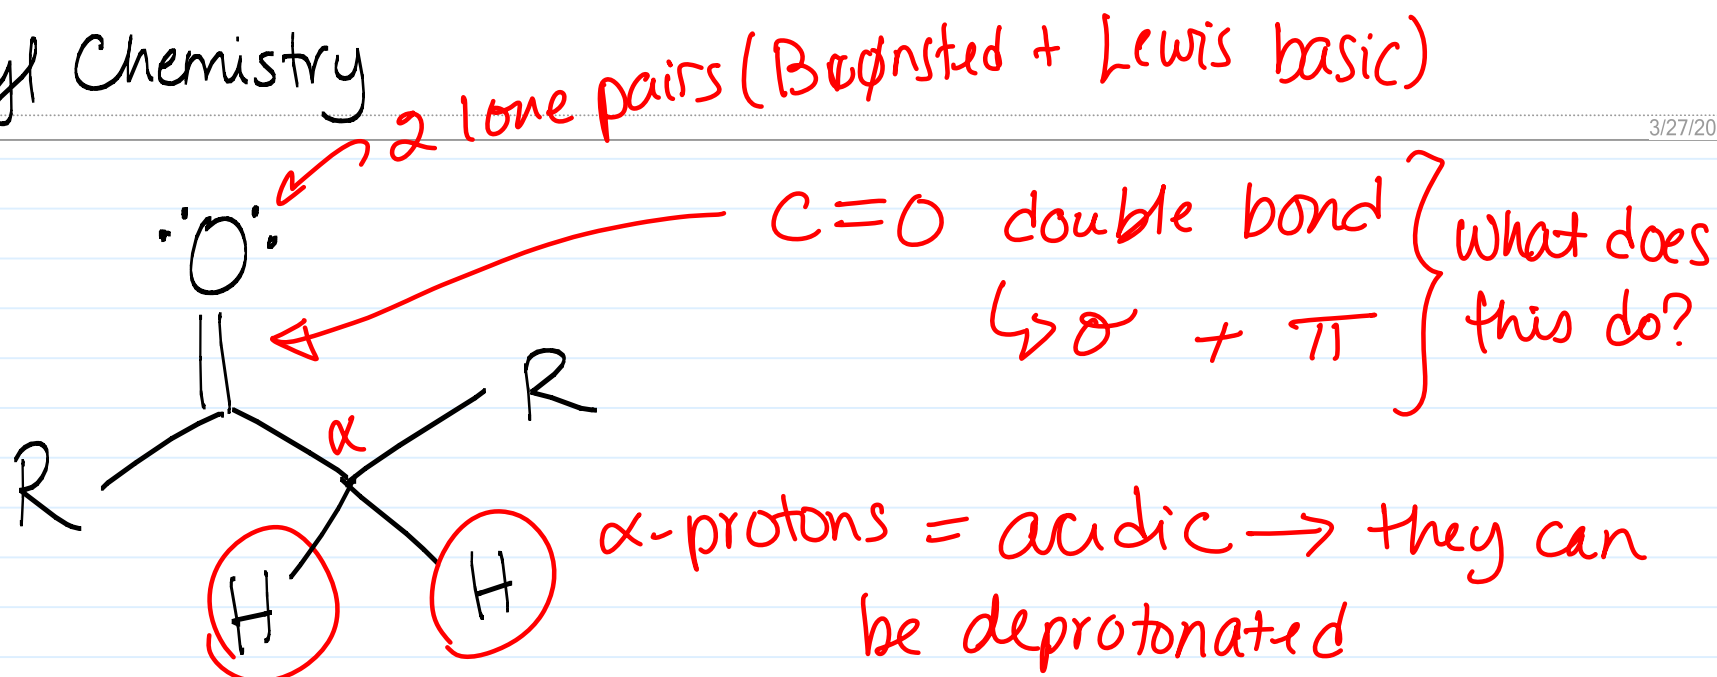 Chemistry
2 lone pairs (Brønsted + Lewis basic)
3/27/20
:O:
C=O double bond
↳ σ + π
what does
this do?
R
α
R
H
H
α-protons = acidic → they can
be deprotonated